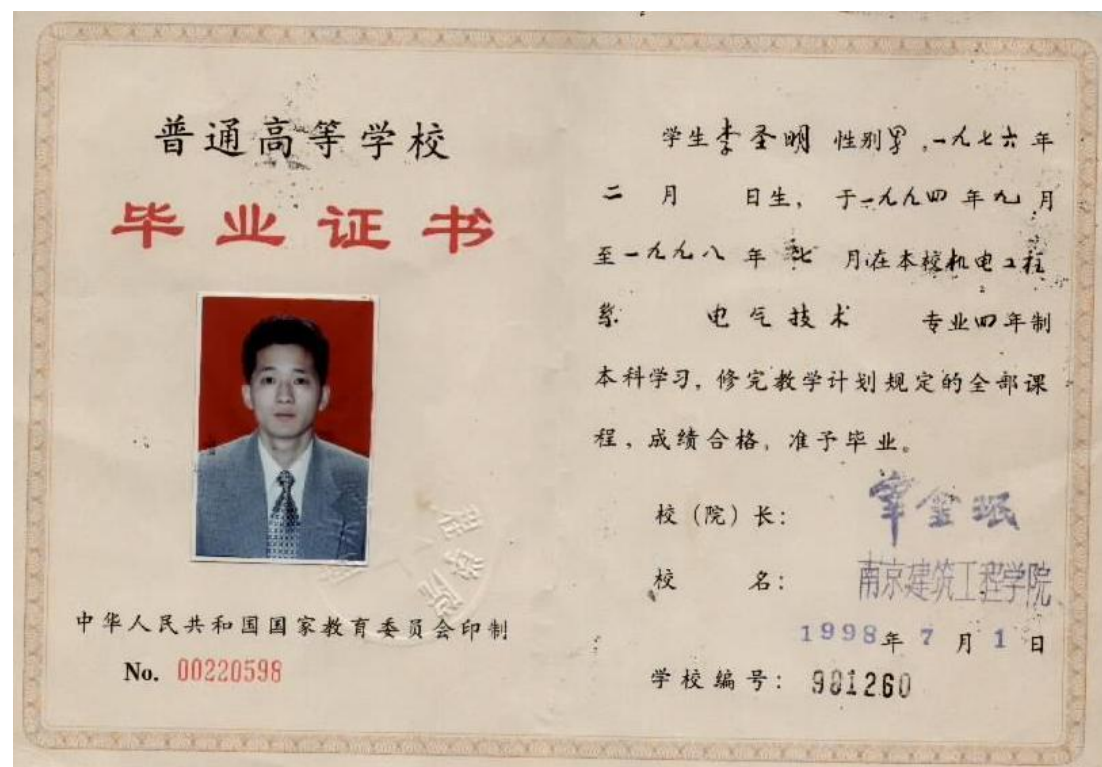 普通高等学校
毕业证书
中华人民共和国国家教育委员会印制
No. 00220598
学生李圣明 性别男,一九七六年
二 月 日生, 于一九九四年九月
至一九九八 年 七 月在本校机电工程
系 电气技术 专业四年制
本科学习,修完教学计划规定的全部课
程、成绩合格,准予毕业。
校(院)长:
校 名: 南京建筑工程学院
1998年 7 月 1 日
学校编号: 981260